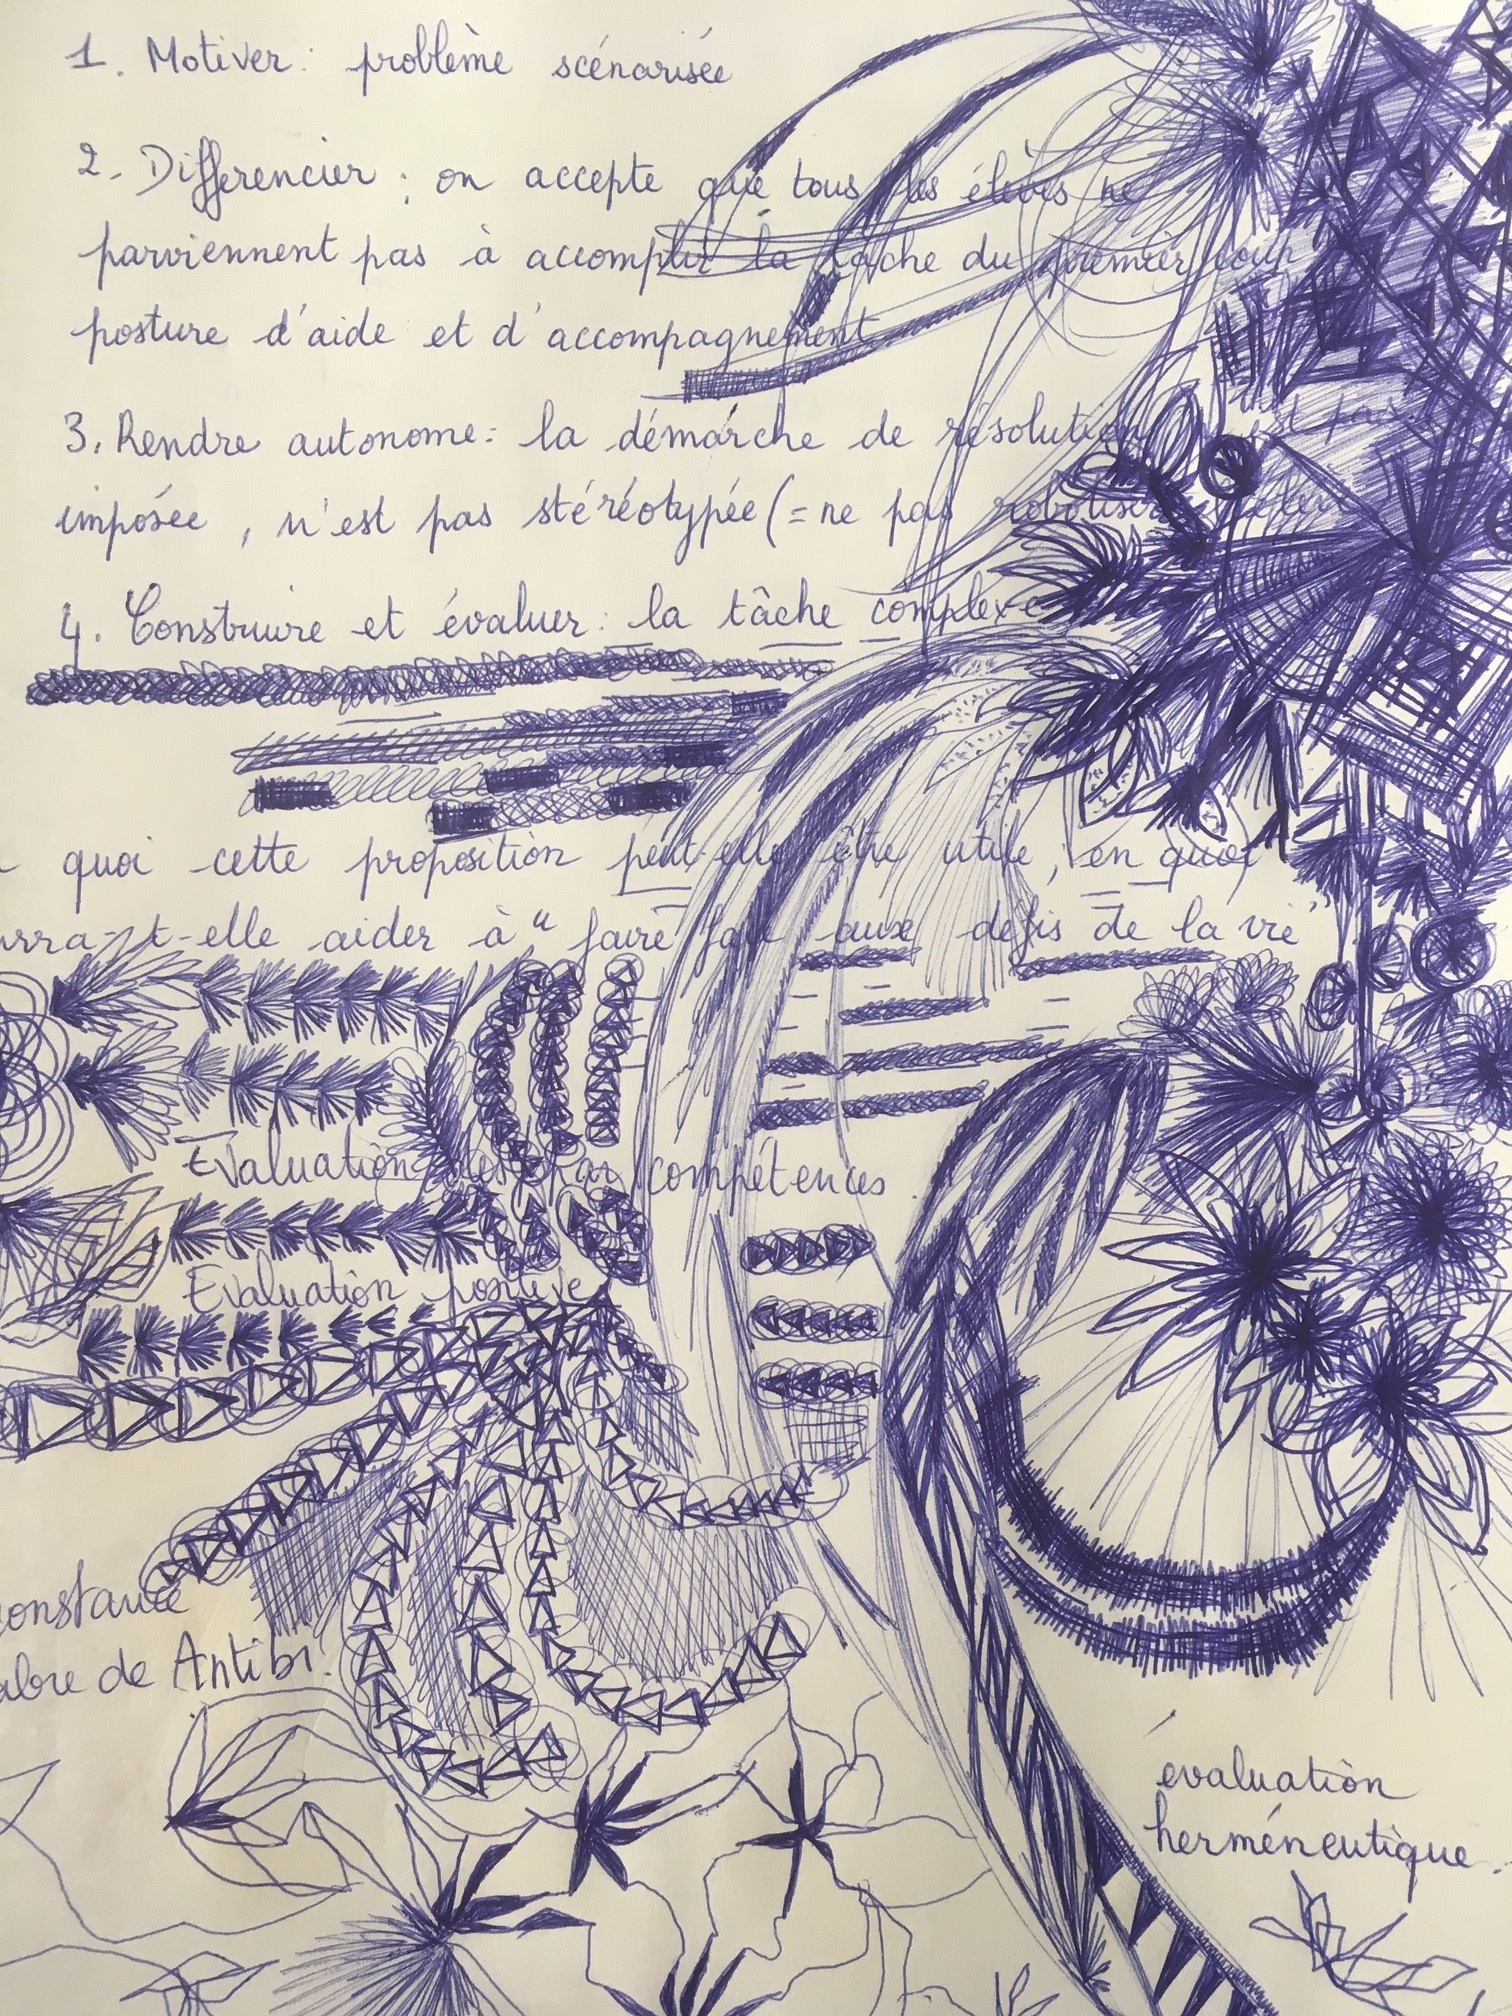 1. Motiver : problème scénarisée
2. Differencier : on accepte que tous les élèves ne
parviennent pas à accomplir la tâche du premier coup
posture d'aide et d'accompagnement.
3. Rendre autonome : la démarche de résolution pas
imposée, n'est pas stéréotypée (= ne pas robotiser
4. Construire et évaluer : la tâche complexe
quoi cette proposition peut elle être utile, en quoi
rra-t-elle aider à "faire face aux défis de la vie"
Evaluation par compétences.
Evaluation positive
constance
de Antibi.
évaluation
herméneutique.